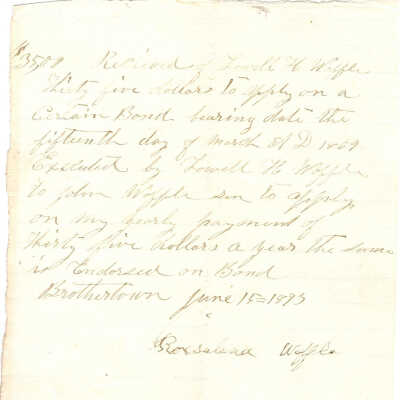 $35.00 Received of Lowell H Woffle
thirty five dollars to apply on a
certain Bond bearing date the
fifteenth day of march A D 1869
Executed by Lowell H Woffle
to John Woffle sen to apply
on my yearly payment of
thirty five dollars a year the same
is Endorsed on Bond
Brothertown June 15=1893
Woffle